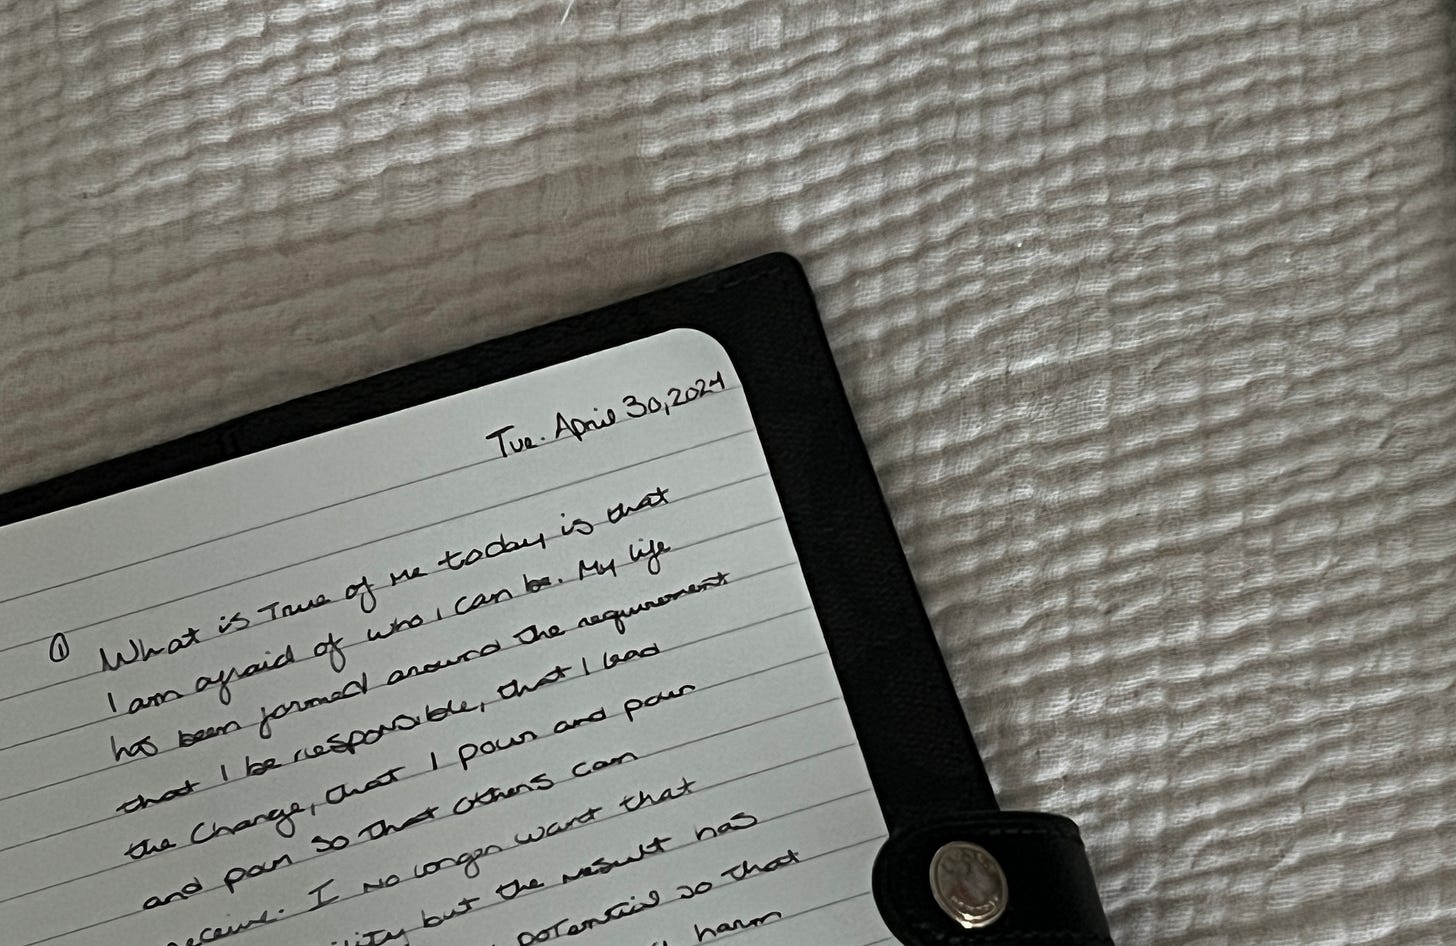 Tue. April 30, 2024
① What is True of me today is that
I am afraid of who I can be. My life
has been formed around the requirement
that I be responsible, that I lead
the Change, that I pour and pour
and pour so that others can
receive. I no longer want that
but the result has
potential so that
harm